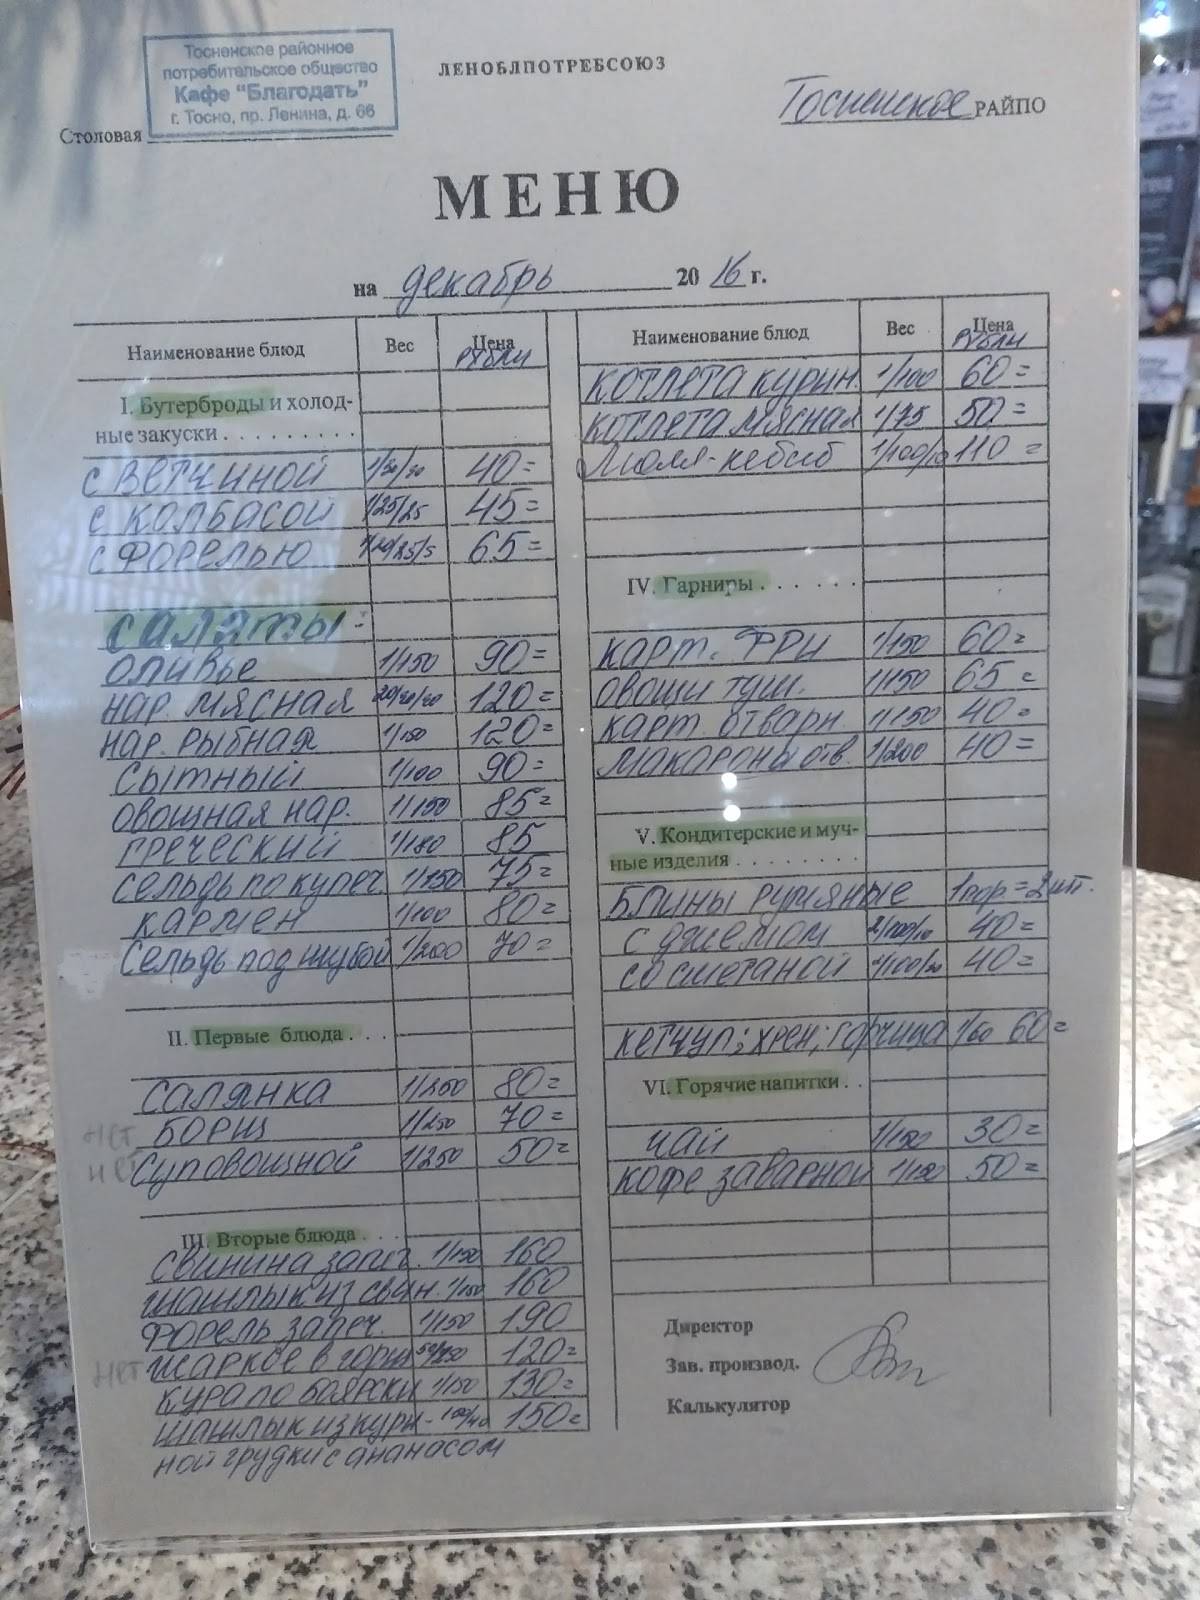 Тосненское районное
потребительское общество
Кафе "Благодать"
г. Тосно, пр. Ленина, д. 66
ЛЕНОБЛПОТРЕБСОЮЗ
Столовая
Тосненское РАЙПО
МЕНЮ
на декабрь 2016 г.
Наименование блюд Вес Цена
рубли
I. Бутерброды и холод-
ные закуски . . . . . . . . .
с ветчиной 40=
с колбасой 1/25/25 45=
с форелью 65=
Салаты:
оливье 1/150 90=
нар. мясная 120=
нар. рыбная 1/150 120=
сытный 1/100 90=
овощная нар. 1/150 85=
греческий 1/180 85
сельдь по купеч. 1/150 75=
кармен 1/100 80=
Сельдь под шубой 1/200 70=
II. Первые блюда . . .
салянка 1/250 80=
нет борщ 1/250 70=
нет суп овощной 1/250 50=
III. Вторые блюда . . .
свинина запеч. 1/150 160
шашлык из свин. 1/150 160
форель запеч. 1/150 190
нет жаркое в горш 120=
кура по боярски 1/150 130=
шашлык из кури- 150=
ной грудки с ананасом
Наименование блюд Вес Цена
рубли
котлета курин. 1/100 60=
котлета мясная 1/75 50=
Люля-кебаб 1/100/10 110=
IV. Гарниры . . . . . .
карт. фри 1/150 60=
овощи туш. 1/150 65=
карт. отварн. 1/150 40=
макароны отв. 1/200 40=
V. Кондитерские и муч-
ные изделия . . . . . . . .
блины румяные 1 пор.=2 шт.
с джемом 40=
со сметаной 40=
кетчуп; хрен; горчица 1/60 60=
VI. Горячие напитки . .
чай 1/150 30=
кофе заварной 1/150 50=
Директор
Зав. производ.
Калькулятор